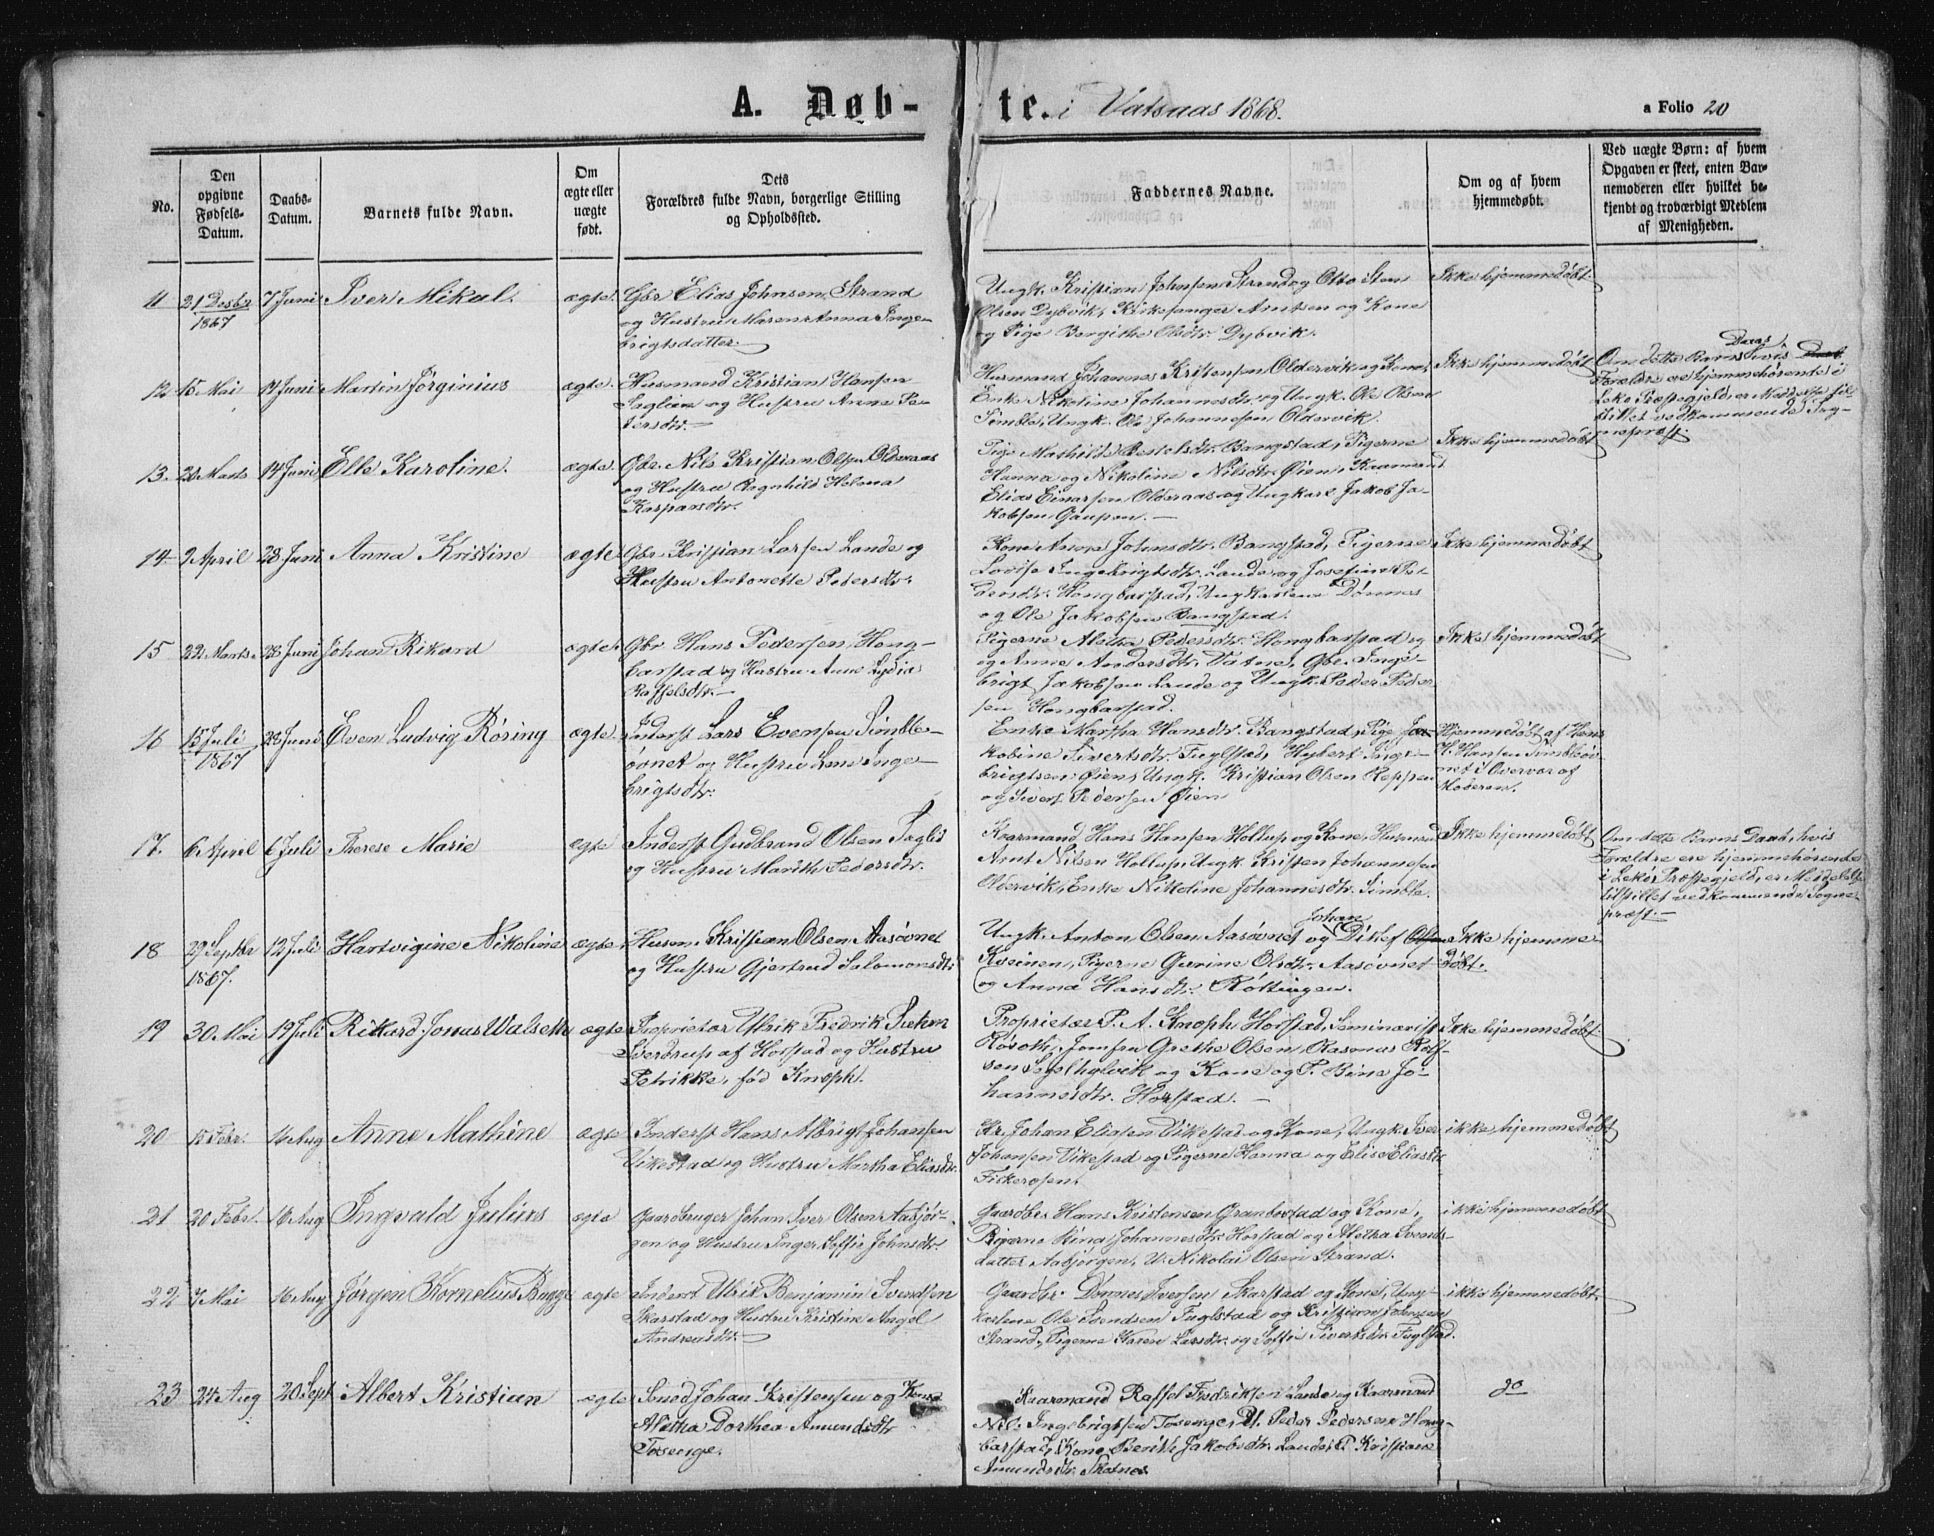 A. Døb-te. i Vatsaas 1868.
a Folio 20
No.
Den opgivne Fødsels-Datum.
Daabs-Datum.
Barnets fulde Navn.
Om ægte eller uægte født.
Dets Forældres fulde Navn, borgerlige Stilling og Opholdssted.
Faddernes Navne.
Om og af hvem hjemmedøbt.
Ved uægte Børn: af hvem Opgaven er skeet, enten Barnemoderen eller hvilket bekjendt og troværdigt Medlem af Menigheden.
11 21 Decbr 1867 7 Juni Iver Mikal. ægte.
Gbr Elias Johnsen Strand
og Hustru Maren Anna Inge-
brigtsdatter
Ungk. Kristian Johnsen Strand og Otto
Olsen Dybvik, Kirkesanger Antsen og Kone
og Pige Bergithe Olsdtr. Dybvik.
Ikke hjemmedøbt
12 15 Mai 7 Juni Martin Jørginius ægte.
Husmand Kristian Hansen
og Hustru Anne Pe-
dersdtr.
Husmand Johannes Kristensen Oldervik og Kone,
Enke Nikoline Johannesdtr. og Ungk. Ole Olsen
Simble, Ungk. Ole Johannesen Oldervik.
Ikke hjemmedøbt
Om dette Barns Daab, hvis
Forældre ere hjemmehørende i
Leko Præstegjeld, er Meddelelse til-
stillet vedkommende Sog-
nepræst.
13. 22 Marts 14 Juni Elle Karoline. ægte.
Gbr. Nils Kristian Olsen Oldsraas
og Hustru Ragnhild Helena
Kaspersdtr.
Pige Mathilde Bertelsdtr. Bangstad, Pigerne
Hanna og Nikoline Nilsdtr. Øien, Kaarmand
Elias Einarsen Oldsraas og Ungkarl Jakob Ja-
kobsen Gaupen.
Ikke hjemmedøbt
14 2 April 28 Juni Anna Kristine ægte
Gbr. Kristian Larsen Lande og
Hustru Antonette Pedersdtr.
Kone Anne Johnsdtr. Bangstad, Pigerne
Lovise Ingebrigtsdtr. Lande og Josefine Pe-
dersdtr. Hongbarstad, Ungkarlene Dønnes
og Ole Jakobsen Bangstad.
Ikke hjemmedøbt
15 22 Marts 28 Juni Johan Rikard ægte.
Gbr Hans Pedersen Hong-
barstad og Hustru Anne Lydia
Raffelsdtr.
Pigerne Aletha Pedersdtr. Hongbarstad og
og Anne Andersdtr. Vatne, Gbr. Inge-
brigt Jakobsen Lande og Ungk. Peder Peder-
sen Hongbarstad.
Ikke hjemmedøbt
16 15 Juli 1867 28 Juni Even Ludvig Røring ægte.
Inderst Lars Evensen Simble-
øvnet og Hustru Inge-
brigtsdtr.
Enke Martha Hansdtr. Bangstad, Pige Ja-
kobine Sivertsdtr. Fuglstad, Hybert Inge-
brigtsen Øien, Ungk. Kristian Olsen Reppen
og Sivert Pedersen Øien
Hjemmedøbt af Hans
H. Hansen Simbleøv-
net i Overvær af
Moderen.
17. 6 April 6 Juli Therese Marie ægte
Inderst Gudbrand Olsen
og Hustru Marith Pedersdtr.
Kaarmand Hans Hansen Hollup og Kone, Husmand
Arnt Nilsen Hollup, Ungk. Kristen Johannesen
Oldervik, Enke Nikoline Johannesdtr. Simble.
Ikke hjemmedøbt
Om dette Barns Daab, hvis
Forældre ere hjemmehørende
i Lekø Præstegjeld, er Meddelelse
tilstillet vedkommende Sogne-
præst.
18 29 Septbr 1867. 12 Juli Hartvigine Nikoline ægte
Husm. Kristian Olsen Aasøvnet
og Hustru Gjertrud Salomonsdtr.
Ungk. Anton Olsen Aasøvnet og Johan Ditlef Olsen
Kveinen, Pigerne Gurine Olsdtr. Aasøvnet
og Anna Hansdtr. Røttingen.
Ikke hjemme-
døbt.
19 30 Mai 19 Juli Rikard Jonus Walseth ægte
Proprietær Ulrik Fredrik Suhm
Sverdrup af Horstad og Hustru
Petrikke, fød Knoph.
Proprietær P. A. Knoph Horstad, Seminarist
Jomfru Grethe Olsen, Rasmus Rolf-
sen og Kone og P. Bine Jo-
hannesdtr. Horstad.
Ikke hjemmedøbt.
20 15 Febr. 16 Aug Anne Mathine ægte
Inderst Hans Albrigt Johansen
Vikestad og Hustru Martha Eliasdtr.
Kr. Johan Eliasen Vikestad og Kone, Ungk. Iver
Johansen Vikestad og Pigerne Hanna og Elise Eliasdtr
Fiskerosen.
ikke hjemmedøbt
21 20 Febr. 16 Aug Ingvald Julius ægte
Gaardbruger Johan Iver Olsen Aasjør-
gen og Hustru Inger Soffie Johnsdtr.
Gaardbr. Hans Kristensen Granbostad og Kone,
Pigerne Stina Johannesdtr. Horstad og Aletha Svends-
datter Aasjørgen, U. Nikolai Olsen Strand.
ikke hjemmedøbt
22 7 Mai 16 Aug Jørgen Kornelius Bugge ægte
Inderst Ulrik Benjamin Svendsen
Skarstad og Hustru Kristine Angel
Andreasdtr.
Gaardbr. Dønnes Iversen Skarstad og Kone, Ung-
karlene Ole Svendsen Fuglstad og Kristian
Strand, Pigerne Karen Larsdtr. og Soffie Sivertsdtr. Fuglstad.
ikke hjemmedøbt
23 24 Aug 20 Sept Albert Kristian ægte
Johan Kristensen og Kone
Aletha Dorthea Amundsdtr
Tosenge.
Kaarmand Raffel Fredriksen Lande og Kaarmand
Nils Ingebrigtsen Tosenge, U. Peder Pedersen Hong-
barstad, Kone Berith Jakobsdtr. Lande, P. Kristiane
Amundsdtr. Skotnes
do